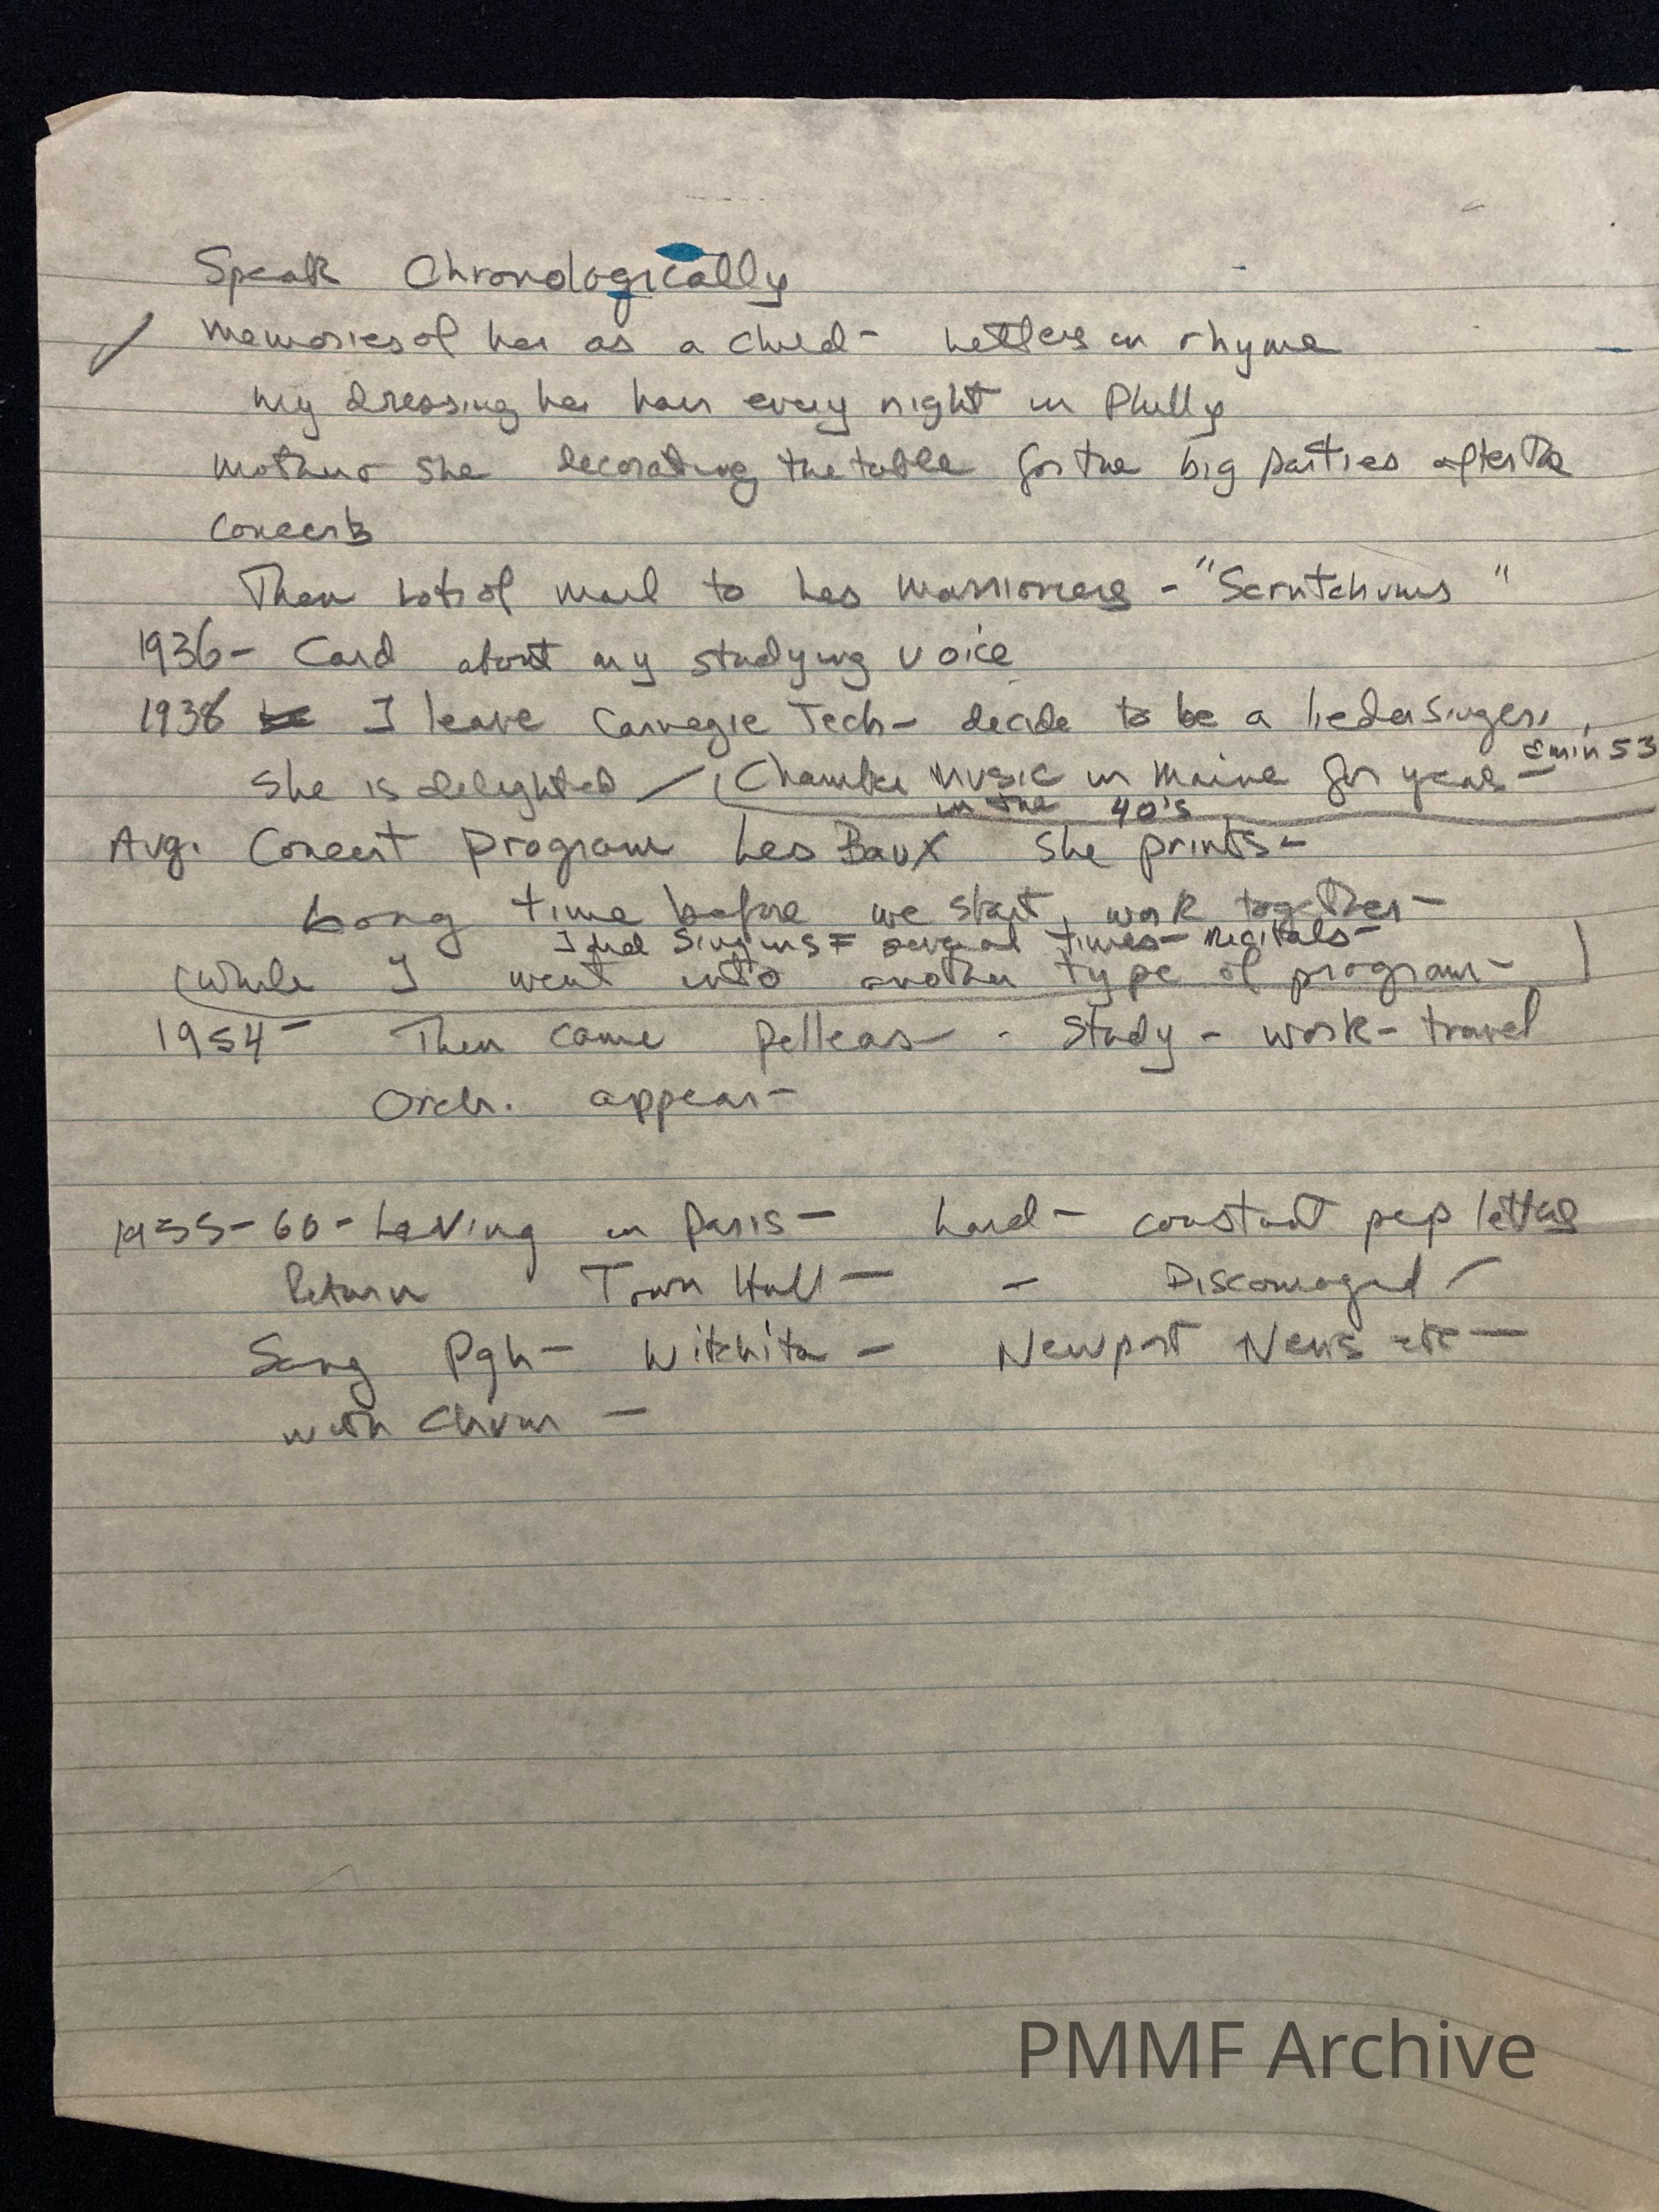 Speak Chronologically
Memories of her as a child - Letters in rhyme
My dressing her hair every night in Philly
Mother & she decorating the table for the big parties after the
concerts
Then lots of mail to her - "
1936 - Card about my studying voice
1938 I leave Carnegie Tech - decide to be a lieder singer.
53
She is delighted - (Chamber Music in Maine for years -
in the 40's
Avg. Concert Program Les Baux She prints -
Long time before we start work together -
I had several times - Recitals -
(While I went into another type of program - )
1954 - Then came Pelleas - - Study - work - travel
Orch. appear -
1955 - 60 - Living in Paris - hard - constant pep letters
Return Town Hall - - Discouraged -
Sang Pgh - Witchita - Newport News etc -
with
PMMF Archive